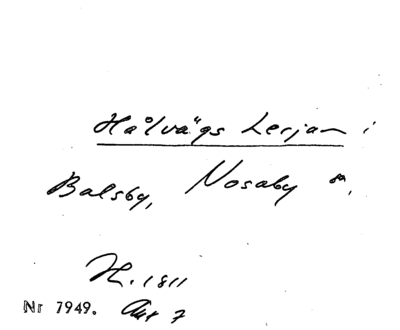 Hålvägs Lerjan i
Balsby, Nosaby sn,
H. 1811
Nr 7949. Akt 7